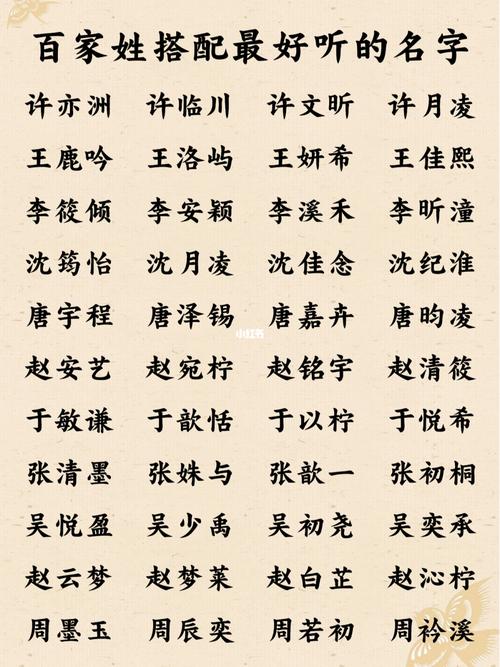 百家姓搭配最好听的名字
许亦洲 许临川 许文昕 许月凌
王鹿吟 王洛屿 王妍希 王佳熙
李筱倾 李安颖 李溪禾 李昕潼
沈筠怡 沈月凌 沈佳念 沈纪淮
唐宇程 唐泽锡 唐嘉卉 唐昀凌
小红书
赵安艺 赵宛柠 赵铭宇 赵清筱
于敏谦 于歆恬 于以柠 于悦希
张清墨 张姝与 张歆一 张初桐
吴悦盈 吴少禹 吴初尧 吴奕承
赵云梦 赵梦莱 赵白芷 赵沁柠
周墨玉 周辰奕 周若初 周衿溪